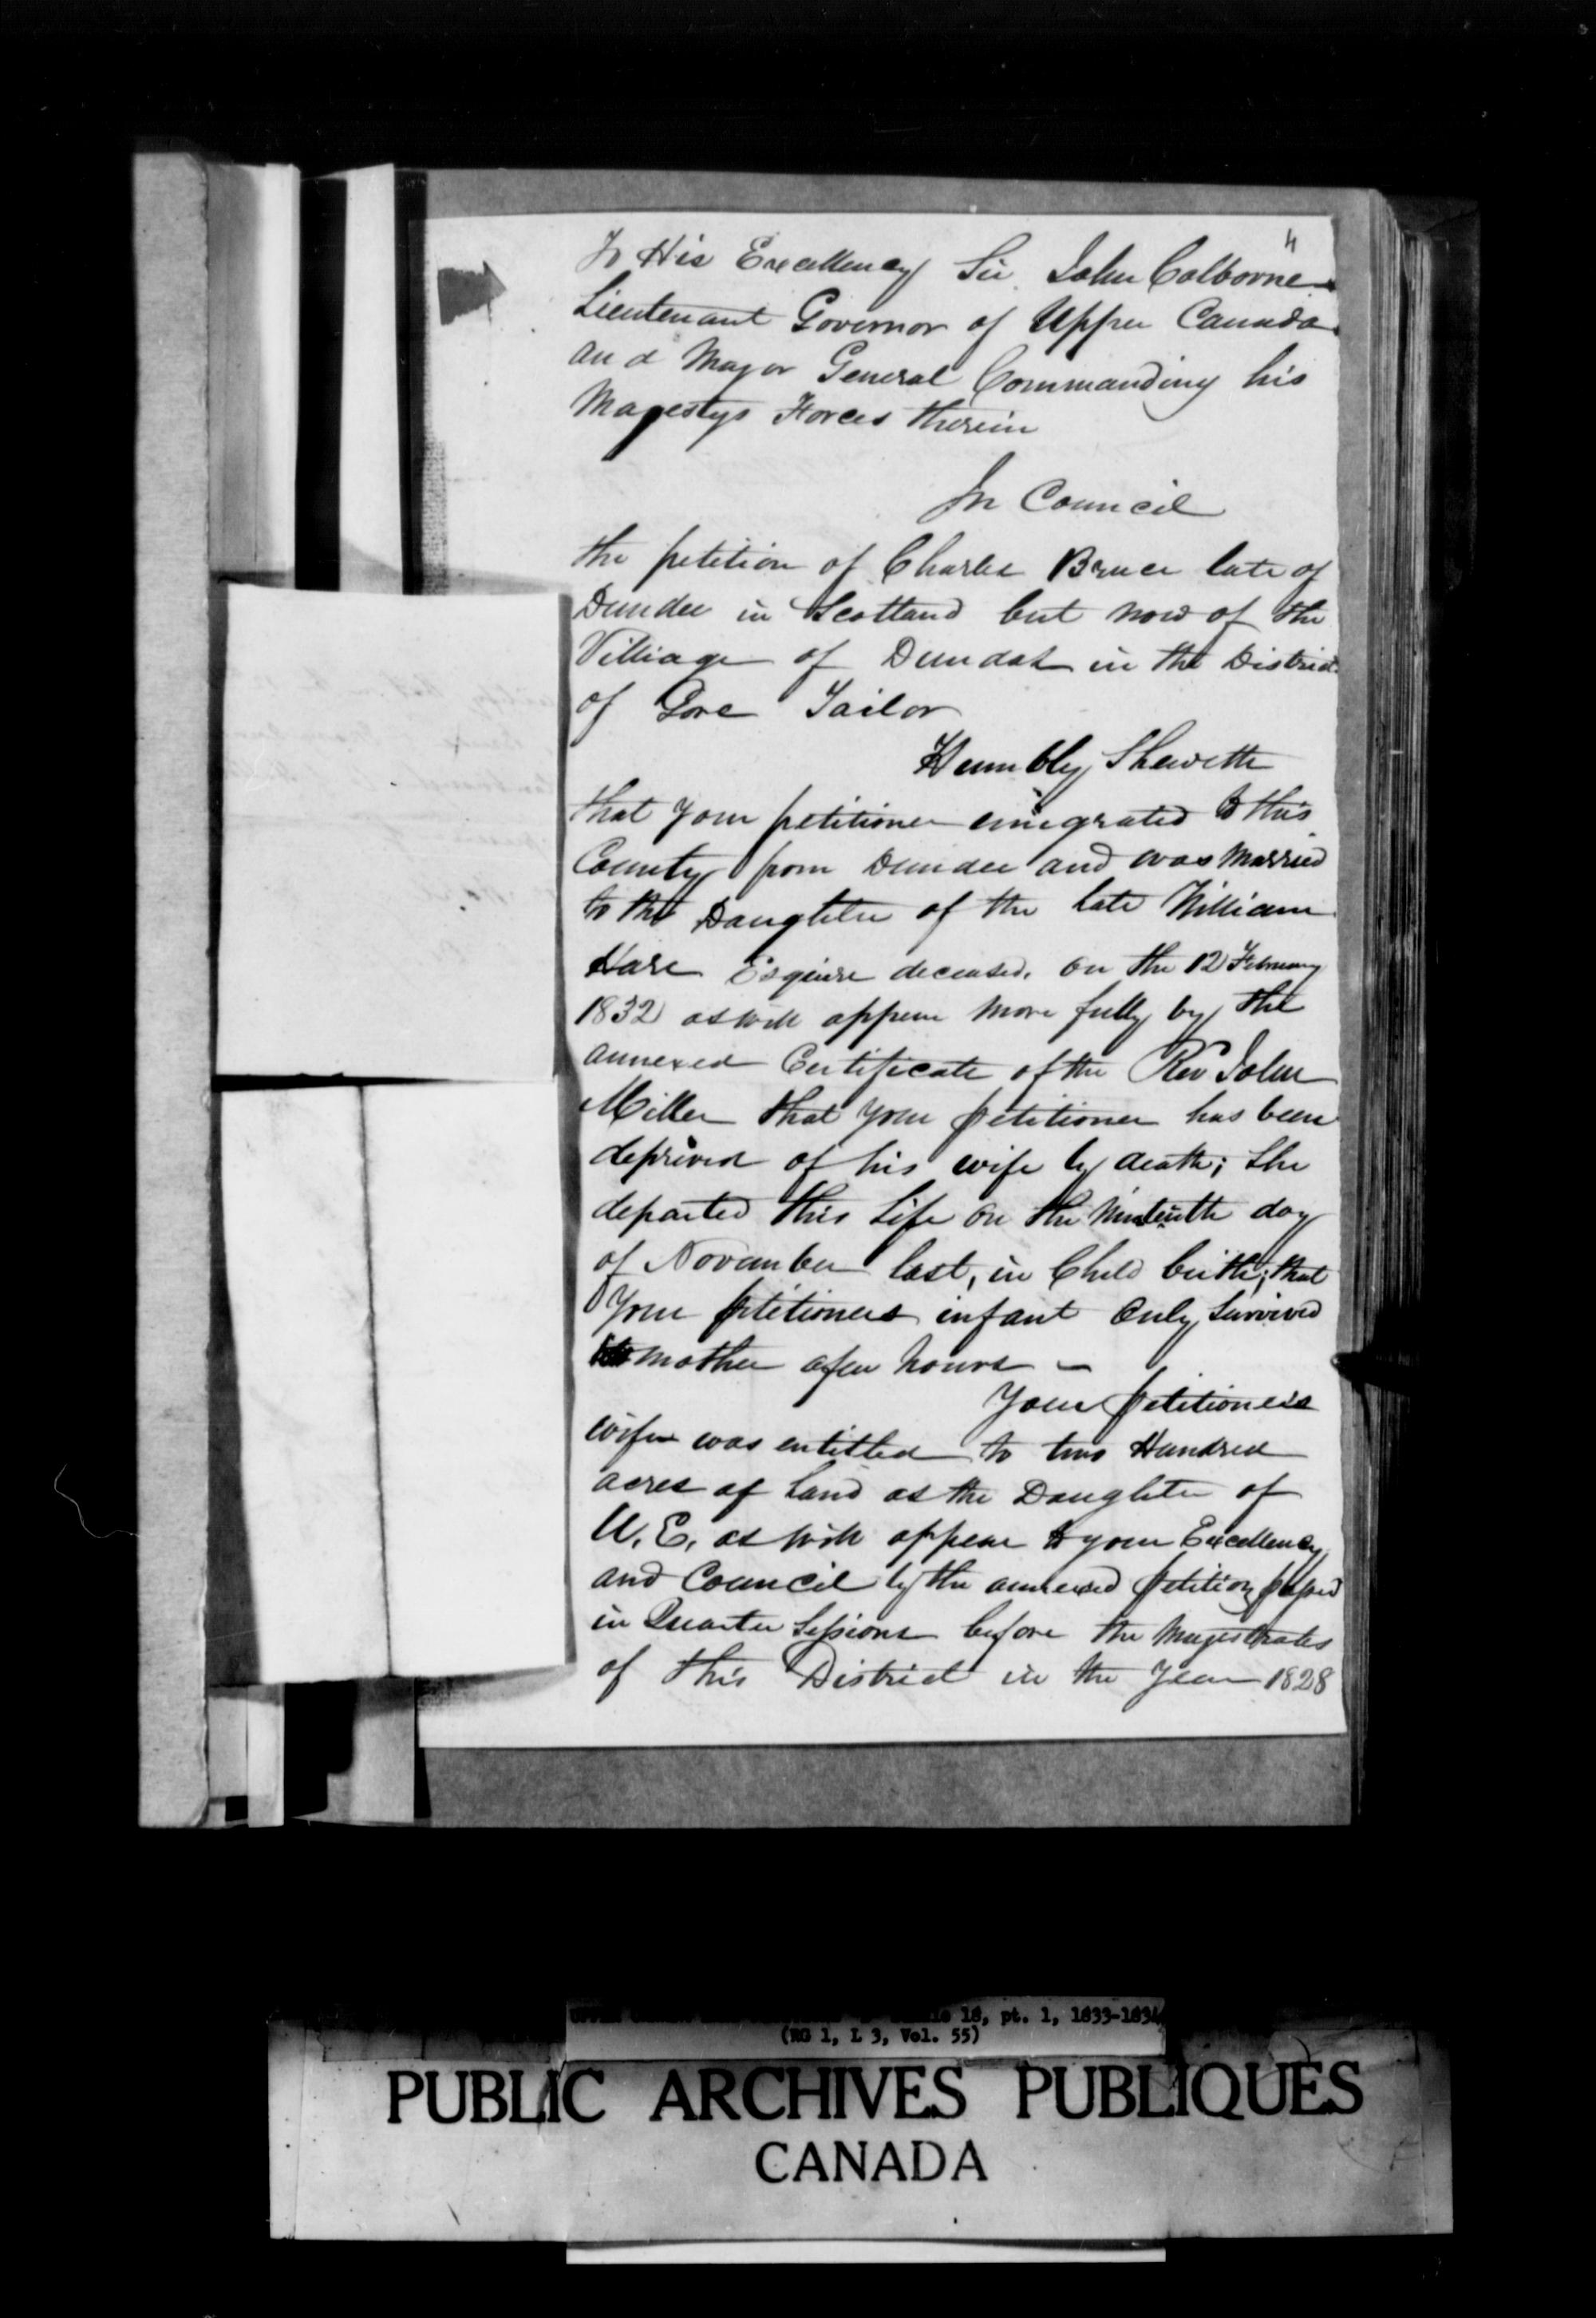 4
To His Excellency Sir John Colborne
Lieutenant Governor of Upper Canada
and Major General Commanding his
Majestys Forces therein
In Council
the petition of Charles Bruce late of
Dundee in Scotland but now of the
Villiage of Dundas in the District
of Gore Tailor
Humbly Sheweth
that your petitioner emigrated to this
County from Dundee and was Married
to the Daughter of the late William
Hare Esquire deceased. on the 12 February
1832 as will appear more fully by the
annexed Certificate of the Rev John
Miller that your petitioner has been
deprived of his wife by death; she
departed this Life on the ninteenth day
of November last, in Child birth; that
your petitioners infant only survived
mother a few hours –
Your petitioners
wife was entitled to two Hundred
acres of Land as the Daughter of
U.E. as will appear to your Excellency
and Council by the annexed petition passed
in Quarter Sessions before the Magestrates
of this District in the year 1828
18, pt. 1, 1833-1834
(RG 1, L 3, Vol. 55)
PUBLIC ARCHIVES PUBLIQUES
CANADA